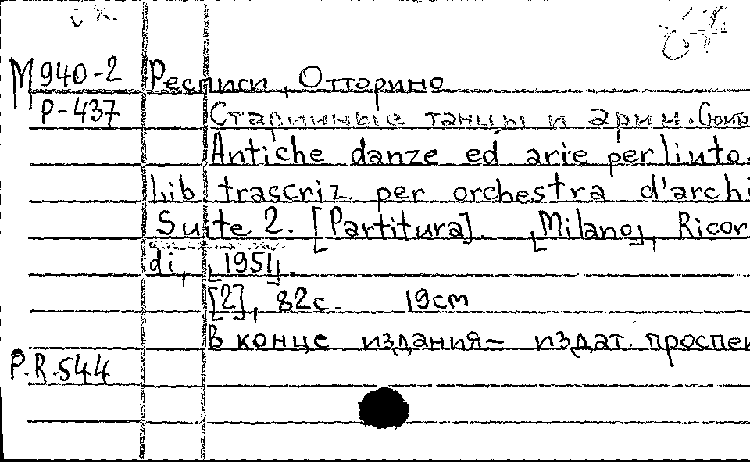 М 940-2 Респиги, Отторино
Р-437 Старинные танцы и арии. Сюи
Antiche danze ed arie per liuto.
Lib trascriz per orchestra d'archi
Suite 2. [Partitura]. [Milano], Ricor
di, [1951].
[2], 82с. 19cm
В конце издания- издат. проспе
P.R.544